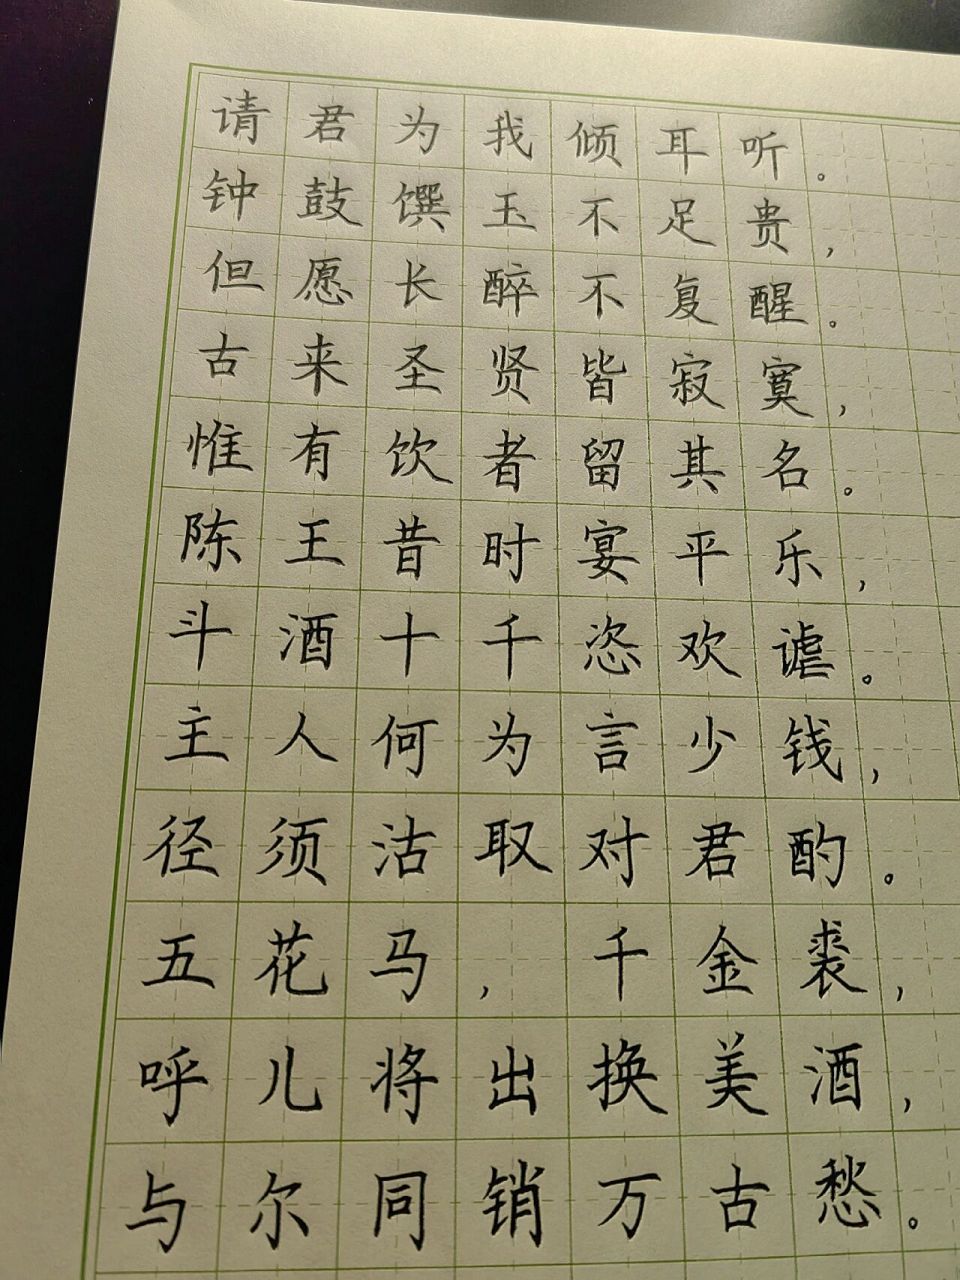 请君为我倾耳听。
钟鼓馔玉不足贵，
但愿长醉不复醒。
古来圣贤皆寂寞，
惟有饮者留其名。
陈王昔时宴平乐，
斗酒十千恣欢谑。
主人何为言少钱，
径须沽取对君酌。
五花马，千金裘，
呼儿将出换美酒，
与尔同销万古愁。